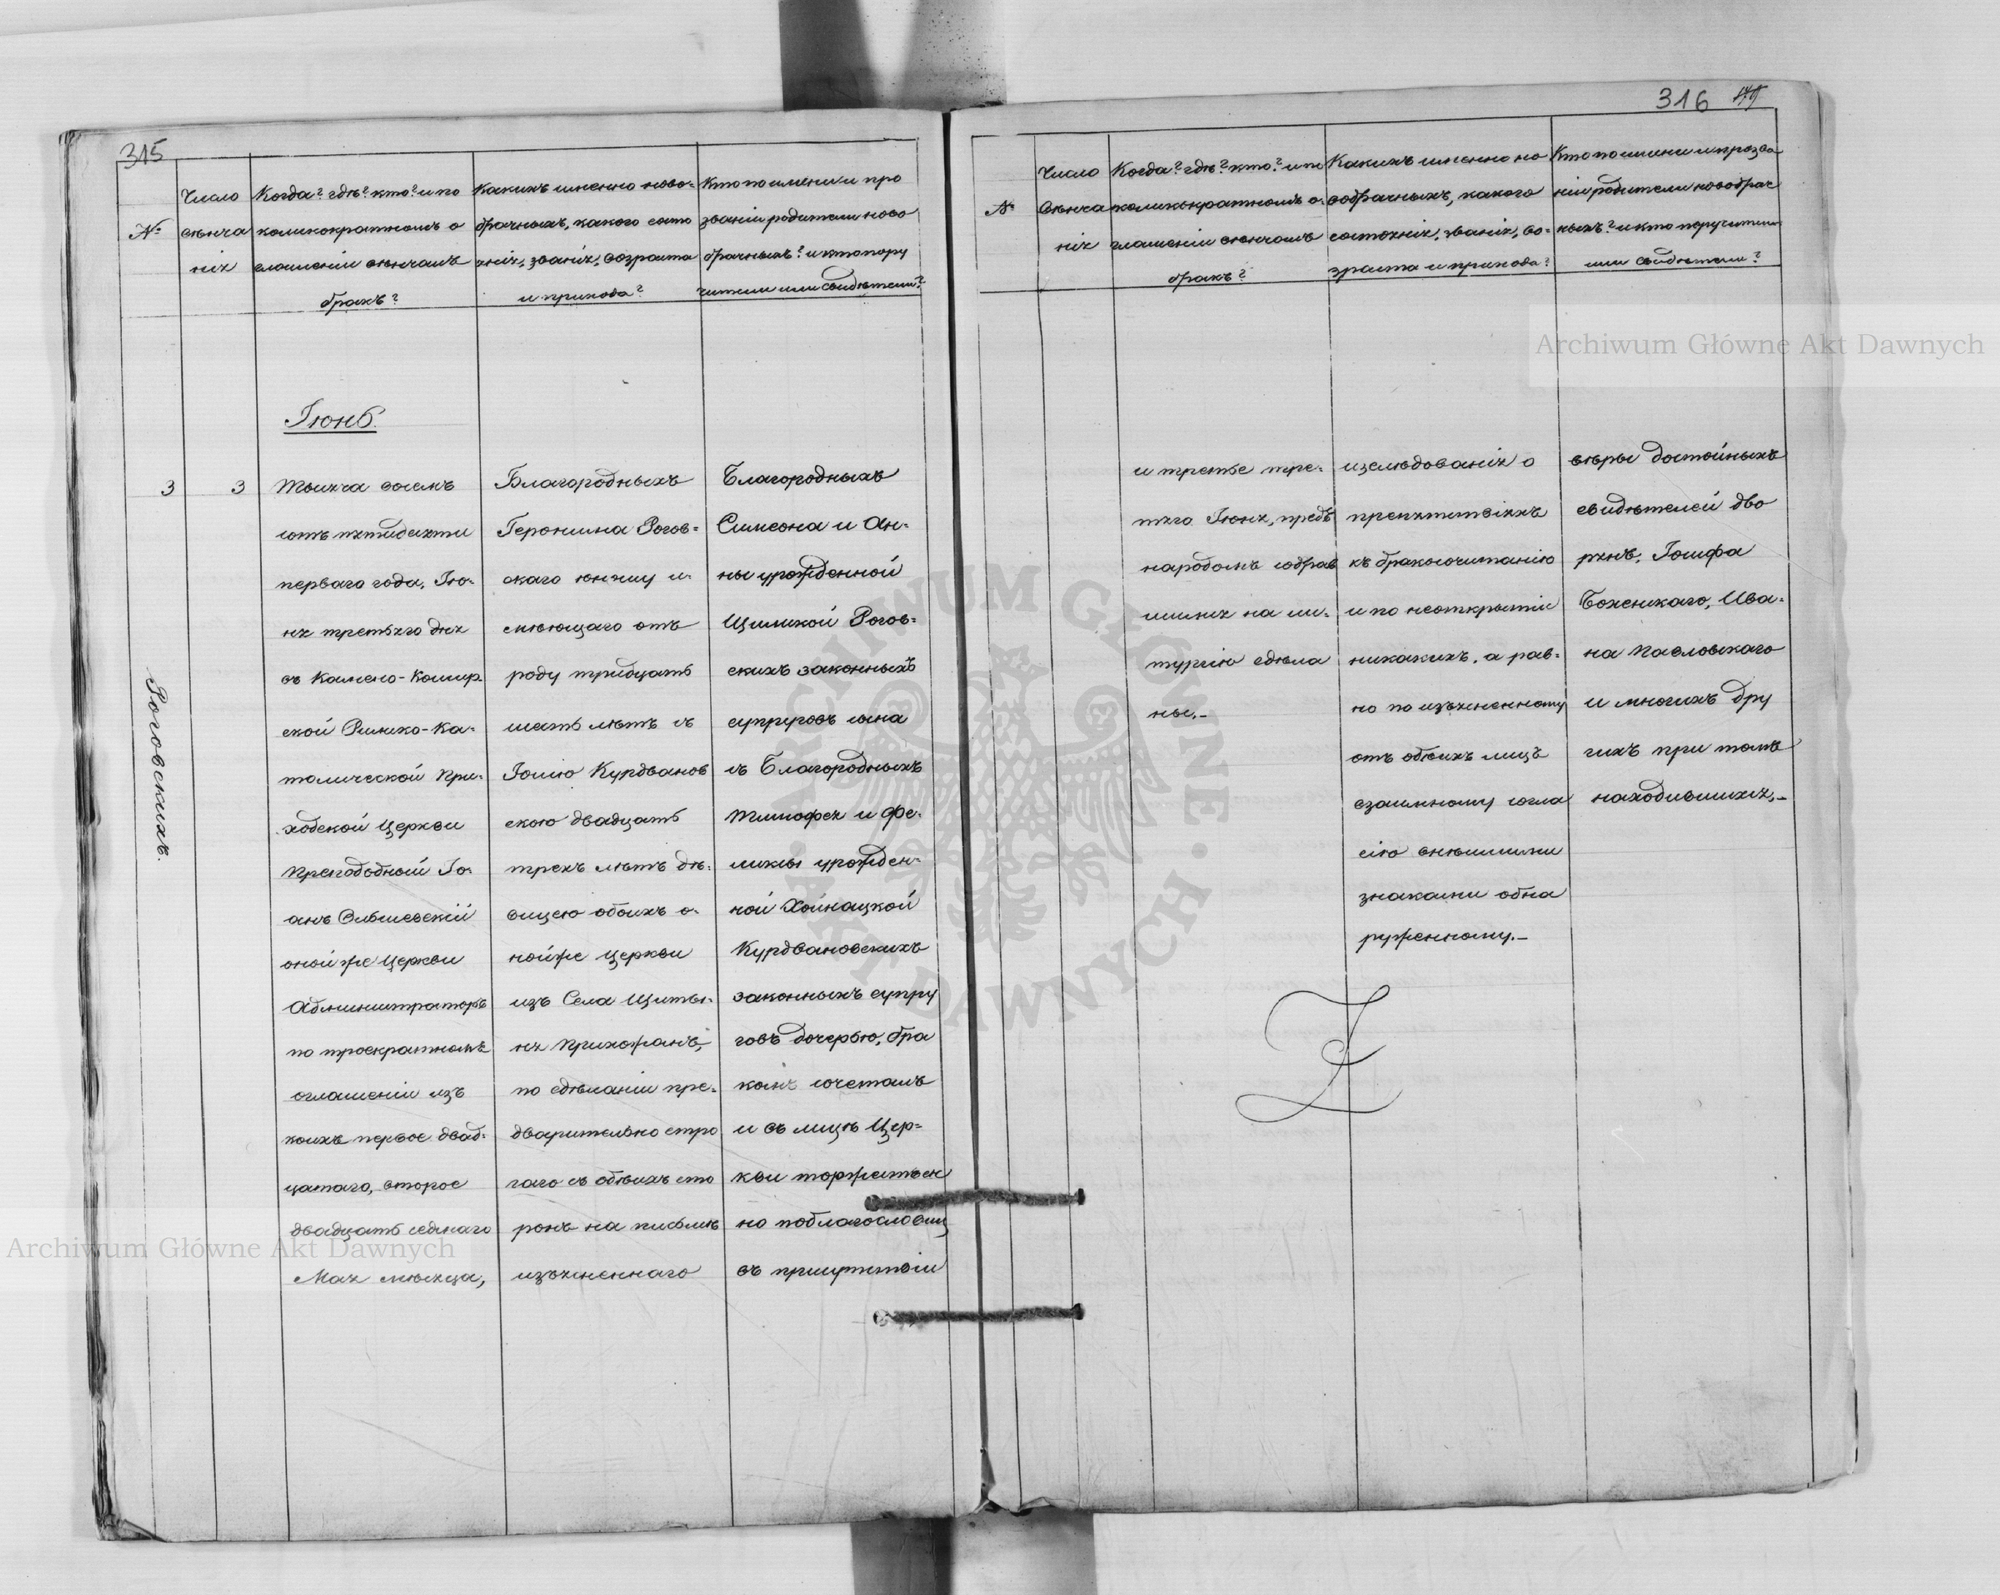 315
№
Число
вѣнча
нія
Когда? гдѣ? кто? и по
коликократномъ о
глашеніи вѣнчалъ
бракъ?
Какихъ именно ново-
брачныхъ, какого состо
янія, званія, возраста
и прихода?
Кто по имени и про
званіи родители ново
брачныхъ? и кто пору
чители или свидѣтели?
Іюнь.
3
3
Роговскихъ.
Тысяча восемъ
сотъ пятидесяти
перваго года, Ію-
ня третьяго дня
въ Камено-Кошир-
ской Римско-Ка-
толической При-
ходской Церкви
Преподобный Іо-
анъ
оной же Церкви
Администраторъ
по троекратномъ
оглашеніи изъ
коихъ первое двад-
цатаго, второе
двадцать седмаго
Мая мѣсяца,
Благородныхъ
Геронима Рогов-
скаго юношу и-
мѣющаго отъ
роду тридцать
шесть лѣтъ съ
Іоліею Курдванов
скою двадцать
трехъ лѣтъ дѣ-
вицею обоихъ о-
ной же Церкви
изъ Села Щиты-
ня Прихожанъ,
по сдѣланіи пре-
дварительно стро
гаго съ обѣихъ сто
ронъ на письмѣ
изъясненнаго
Благородныхъ
Симеона и Ан-
ны урожденной
Рогов-
скихъ законныхъ
супруговъ сына
съ Благородныхъ
Тимофея и Фе-
ликсы урожден-
ной Хойнацкой
Курдвановскихъ
законныхъ супру
говъ дочерью, бра
комъ сочеталъ
и въ лицѣ Цер-
кви торжествен
но поблагословилъ
въ присутствіи
316
№
Число
вѣнча
нія
Когда? гдѣ? кто? и по
коликократномъ о-
глашеніи вѣнчалъ
бракъ?
Какихъ именно но
вобрачныхъ, какого
состоянія, званія, во-
зраста и прихода?
Кто по имени и прозва
ніи родители новобрач
ныхъ? и кто поручители
или свидѣтели?
и третье тре-
тяго Іюня, предъ
народомъ собрав
шимся на ли-
тургію сдѣла
ны.-
изслѣдованія о
препятствіяхъ
къ бракосочитанію
и по неоткрытіи
никакихъ, а рав-
но по изъясненному
отъ обѣихъ лицъ
взаимному согла
сію внѣшними
знаками обна
руженному.-
вѣры достойныхъ
свидѣтелей дво
рянъ, Іосифа
Ива-
на Павловскаго
и многихъ дру
гихъ при томъ
находившихся.-
Archiwum Główne Akt Dawnych
Archiwum Główne Akt Dawnych
ARCHIWUM GŁÓWNE
AKT DAWNYCH